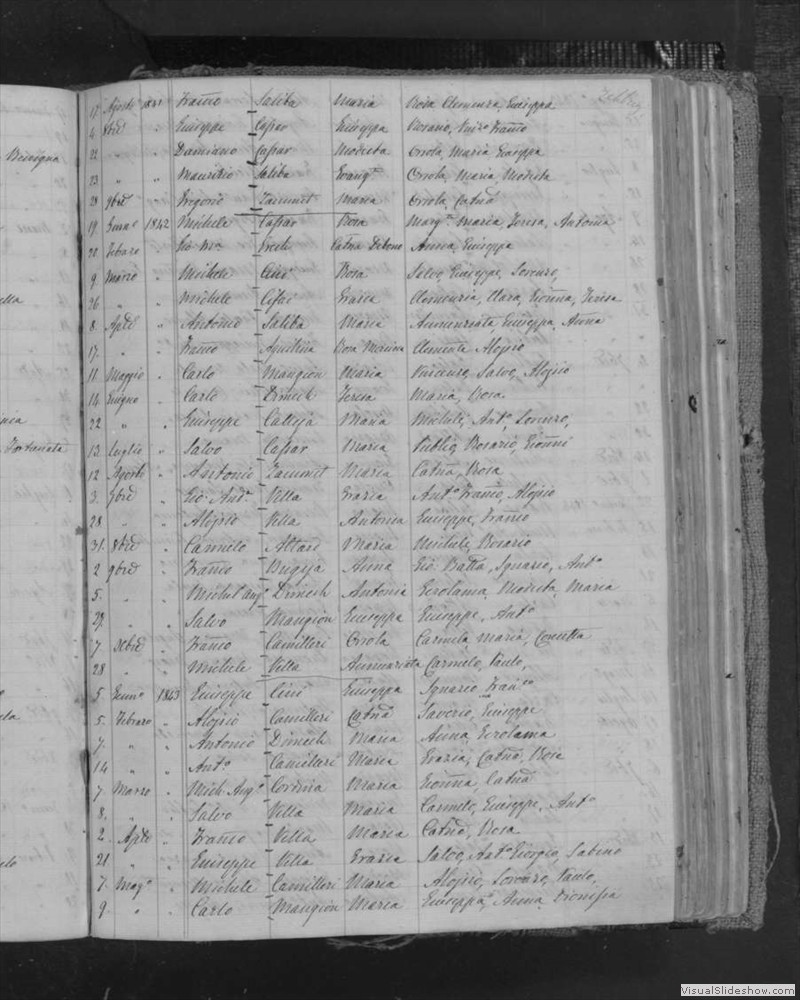 Benigna
ella
nia
Fortunata
17 Agosto 1841 Franco Saliba Maria Rosa Clemenza, Giuseppa
4 8bre " Giuseppe Caspar Giuseppa Rosario, Franco
22 " " Damiano Caspar Modesta Orsola, Maria Giuseppa
23 " " Maurizio Saliba Evangta Orsola, Maria Modesta
28 9bre " Gregorio Zammit Maria Orsola, Catna
19 Genao 1842 Michele Caspar Rosa Margta Maria, Teresa, Antonia
20 Febraro " Gio Ma Catna Debono Anna, Giuseppa
9 Marzo " Michele Cini Rosa Salvo, Giuseppe, Lorenzo,
26 " " Michele Cifai Grazia Clemenzia, Clara, Gionna, Teresa
8 Aple " Antonio Saliba Maria Annunziata Giuseppa, Anna
17 " " Franco Aquilina Rosa Clemente Aloisio
11 Maggio " Carlo Mangion Maria Vincenzo, Salvo, Aloisio
14 Giugno " Carlo Dimech Teresa Maria, Rosa
22 " " Giuseppe Calleja Maria Michele, Anto Lorenzo,
13 Luglio " Salvo Caspar Maria Publio, Rosario, Gionni
12 Agosto " Antonio Zammit Maria Catna, Rosa
3 7bre " Gio: Anto Vella Grazia Anto Franco, Aloisio
28 " " Aloisio Vella Antonia Giuseppe, Franco
31 8bre " Carmelo Attard Maria Michele, Rosario
2 9bre " Franco Bugeja Anna Gio Batta, Ignazio, Anto
5 " " Michel'Ango Dimech Antonia Gerolama, Modesta, Maria
27 " " Salvo Mangion Giuseppa Giuseppe, Anto
7 Xbre " Franco Camilleri Orsola Carmela, Maria, Concetta
28 " " Michele Vella Annunziata Carmelo, Paolo,
5 Genno 1843 Giuseppe Cini Giuseppa Ignazio Franco
5 Febraro " Aloisio Camilleri Catna Saverio, Giuseppe
7 " " Antonio Dimech Maria Anna, Gerolama
14 " " Anto Camilleri Maria Grazia, Catna, Rosa
7 Marzo " Mich. Ango Cordina Maria Gionna, Catna
8 " " Salvo Vella Maria Carmelo, Giuseppe, Anto
2 Aple " Franco Vella Maria Catna, Rosa
21 " " Giuseppe Vella Grazia Salvo, Anto Giorgio, Sabino
7 Mago " Michele Camilleri Maria Aloisio, Lorenzo, Paolo,
9 " " Carlo Mangion Maria Giuseppa, Anna Dionisia
VisualSlideshow.com